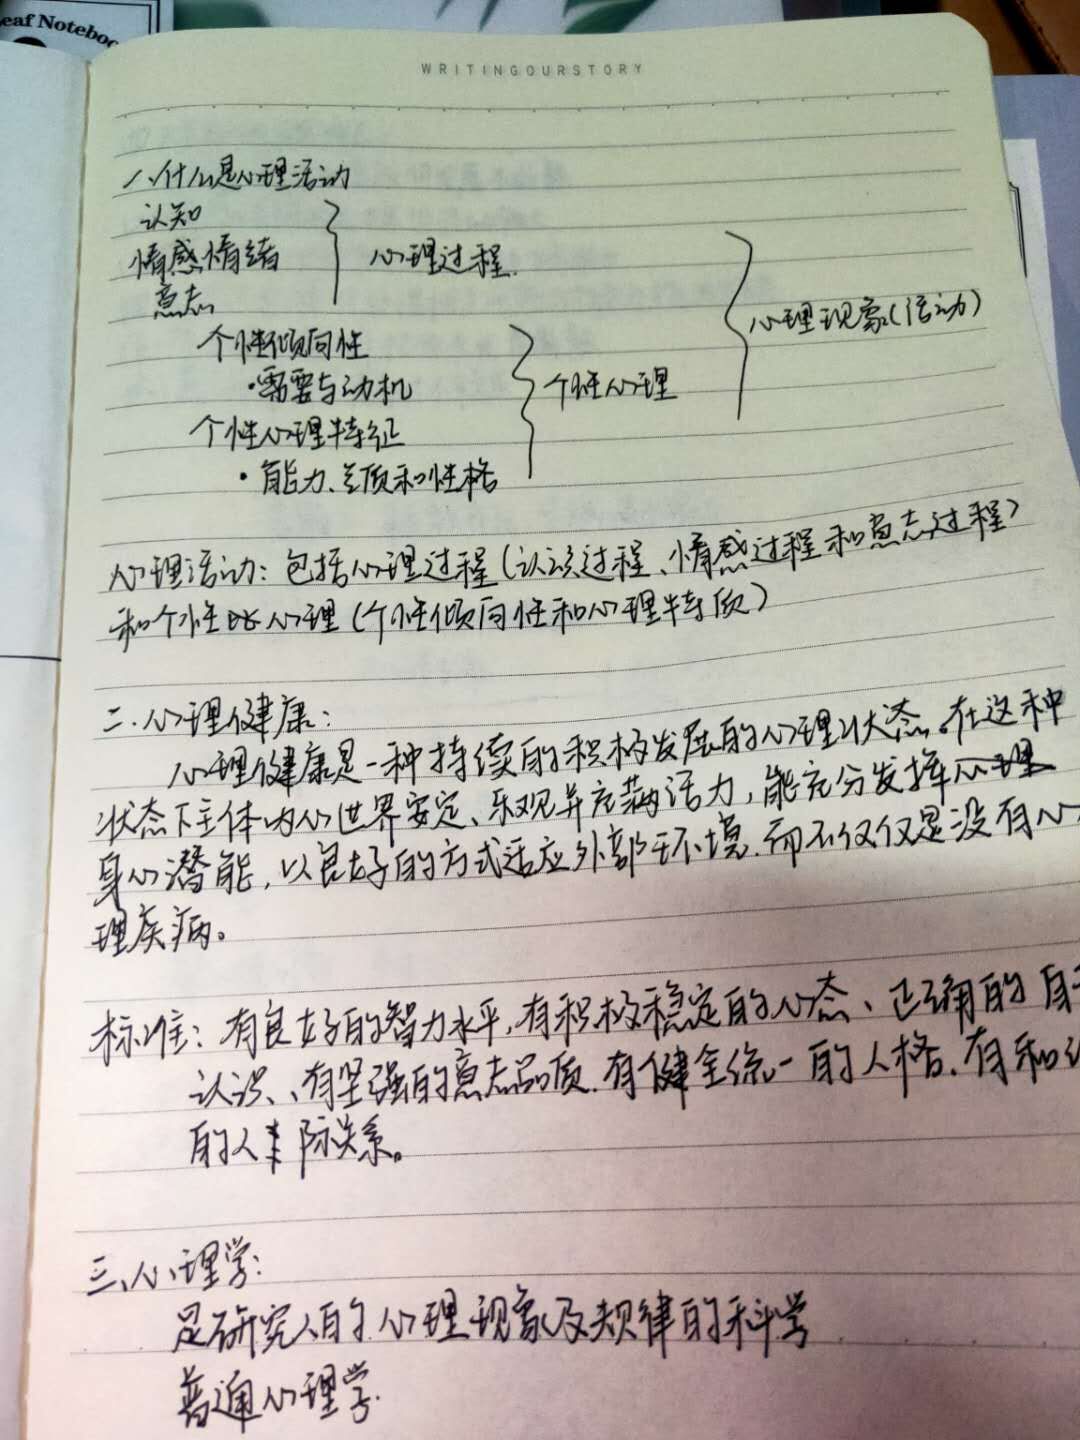 eaf Notebo
WRITINGOURSTORY
一、什么是心理活动
认知
情感情绪
意志
心理过程.
个性倾向性
·需要与动机
个性心理特征
·能力、气质和性格
个性心理
心理现象(活动)
心理活动：包括心理过程(认识过程、情感过程和意志过程)
和个性心理(个性倾向性和心理特质)
二.心理健康：
心理健康是一种持续的积极发展的心理状态。在这种
状态下主体内心世界安定、乐观并充满活力，能充分发挥
身心潜能，以良好的方式适应外部环境.而不仅仅是没有心
理疾病。
标准：有良好的智力水平,有积极稳定的心态、正确的自
认识、有坚强的意志品质.有健全统一的人格.有和
的人际关系。
三、心理学：
是研究人的心理现象及规律的科学
普通心理学.